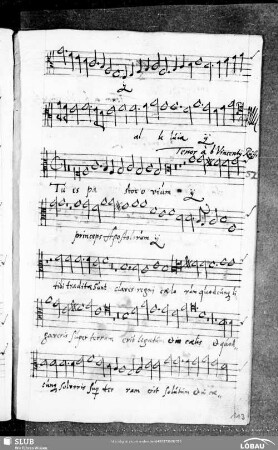 al le luia ij
Tenor à 6 Vincenti. Ruffo
Tu es pa stor o vium ij
princeps Apostolorum ij
tibi traditae sunt claves regni caelo rum quodcumq li
gaveris super terram erit ligatum et in caelis et quod
cumq solveris sup ter ram erit solutum et in cae
SLUB
LÖBAU